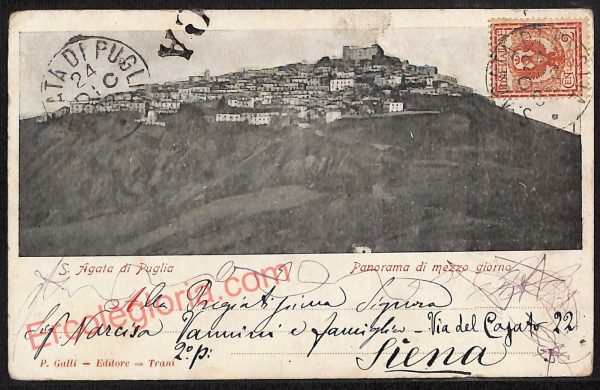 CA
ATA DI PUGLI
24
O
CEN
S. Agata di Puglia
Panorama di mezzo giorno
Ercolegloria.com
Alla Pregiatissima Signora
Sig Narcisa Vannini e famiglia - Via del Casato 22
2° p:
Siena
P. Galli — Editore — Trani